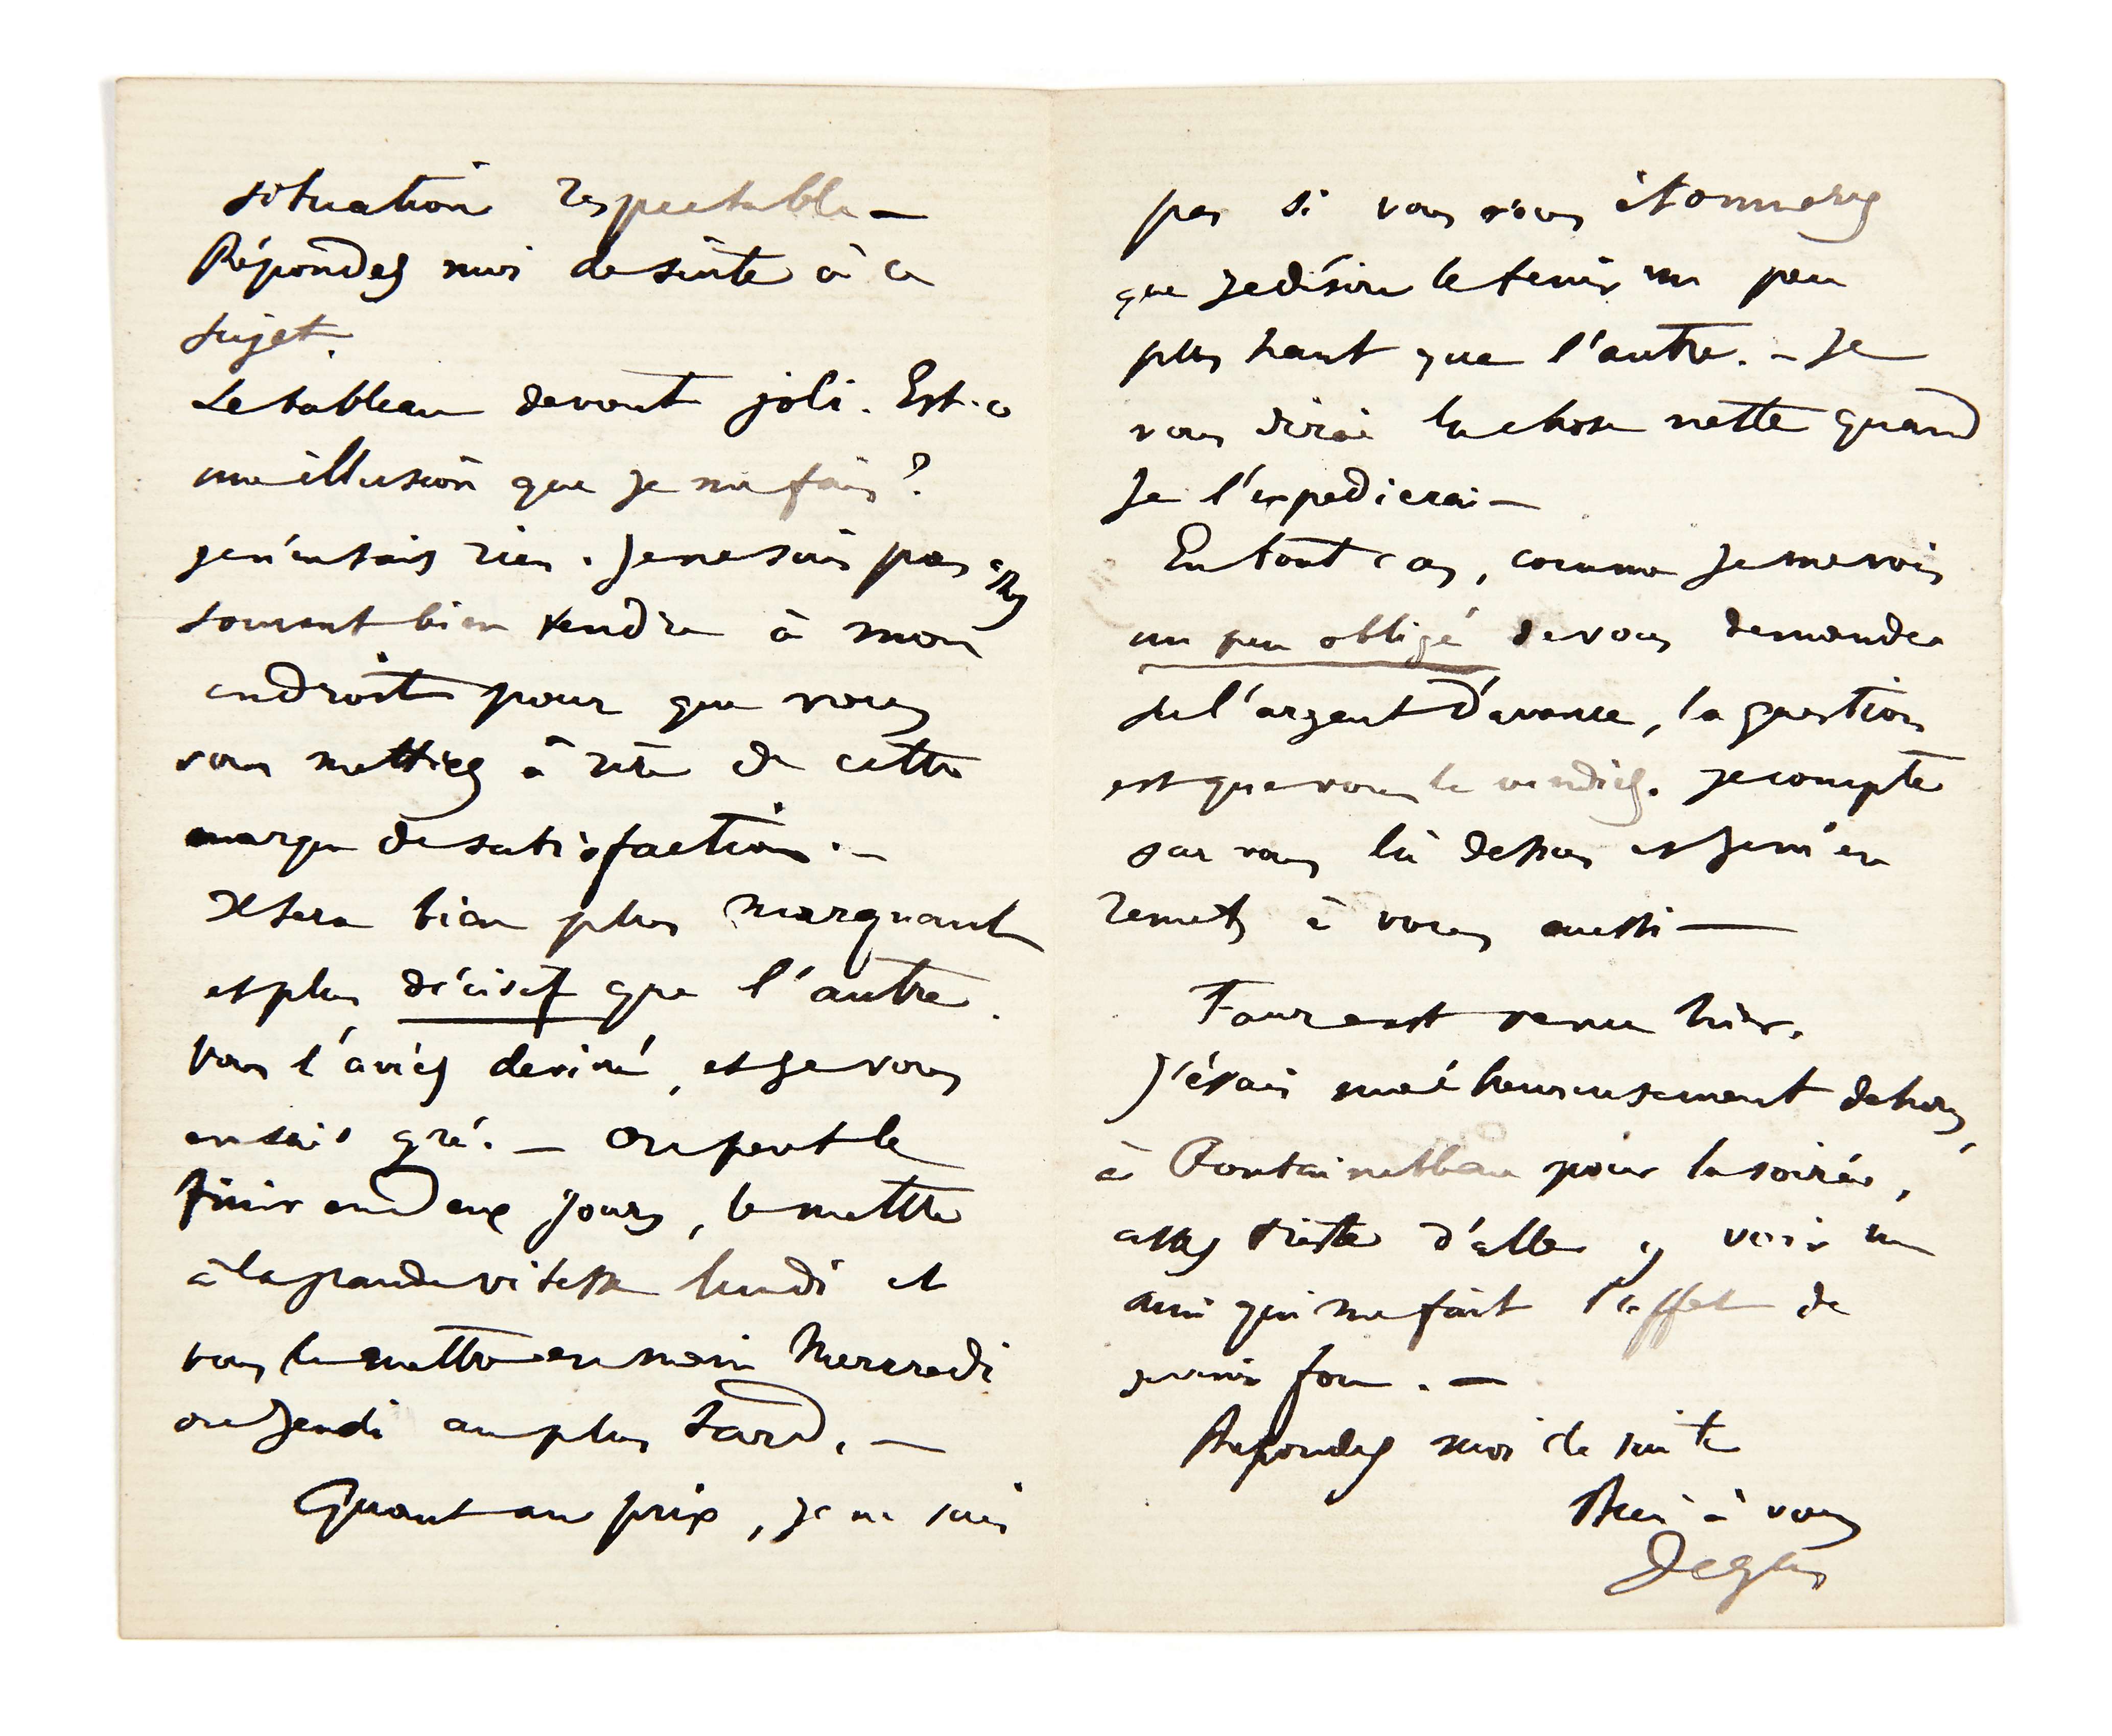 situation respectable —
Répondez moi de suite à ce
sujet.
Le tableau devient joli. Est-ce
une illusion que je me fais ?
je n'en sais rien. Je ne suis pas assez
souvent bien tendre à mon
endroit pour que vous
vous mettiez à rire de cette
marque de satisfaction. —
Il sera bien plus marquant
et plus décisif que l'autre.
Vous l'aviez deviné, et je vous
en sais gré. — On peut le
finir en deux jours, le mettre
à la grande vitesse lundi et
vous le mettre en main Mercredi
ou Jeudi au plus tard. —
Quant au prix, je ne sais
pas si vous vous étonnerez
que je désire le tenir un peu
plus haut que l'autre. — Je
vous dirai la chose nette quand
je l'expedierai —
En tout cas, comme je me vois
un peu obligé de vous demander
de l'argent d'avance, la question
est que vous le vendiez. Je compte
sur vous là dessus et je m'en
remets à vous aussi —
Faure est venu hier.
J'étais malheureusement dehors,
à Fontainebleau pour la soirée,
assez triste d'aller y voir un
ami qui me fait l'effet de
devenir fou. —
Repondez moi de suite
Bien à vous
Degas